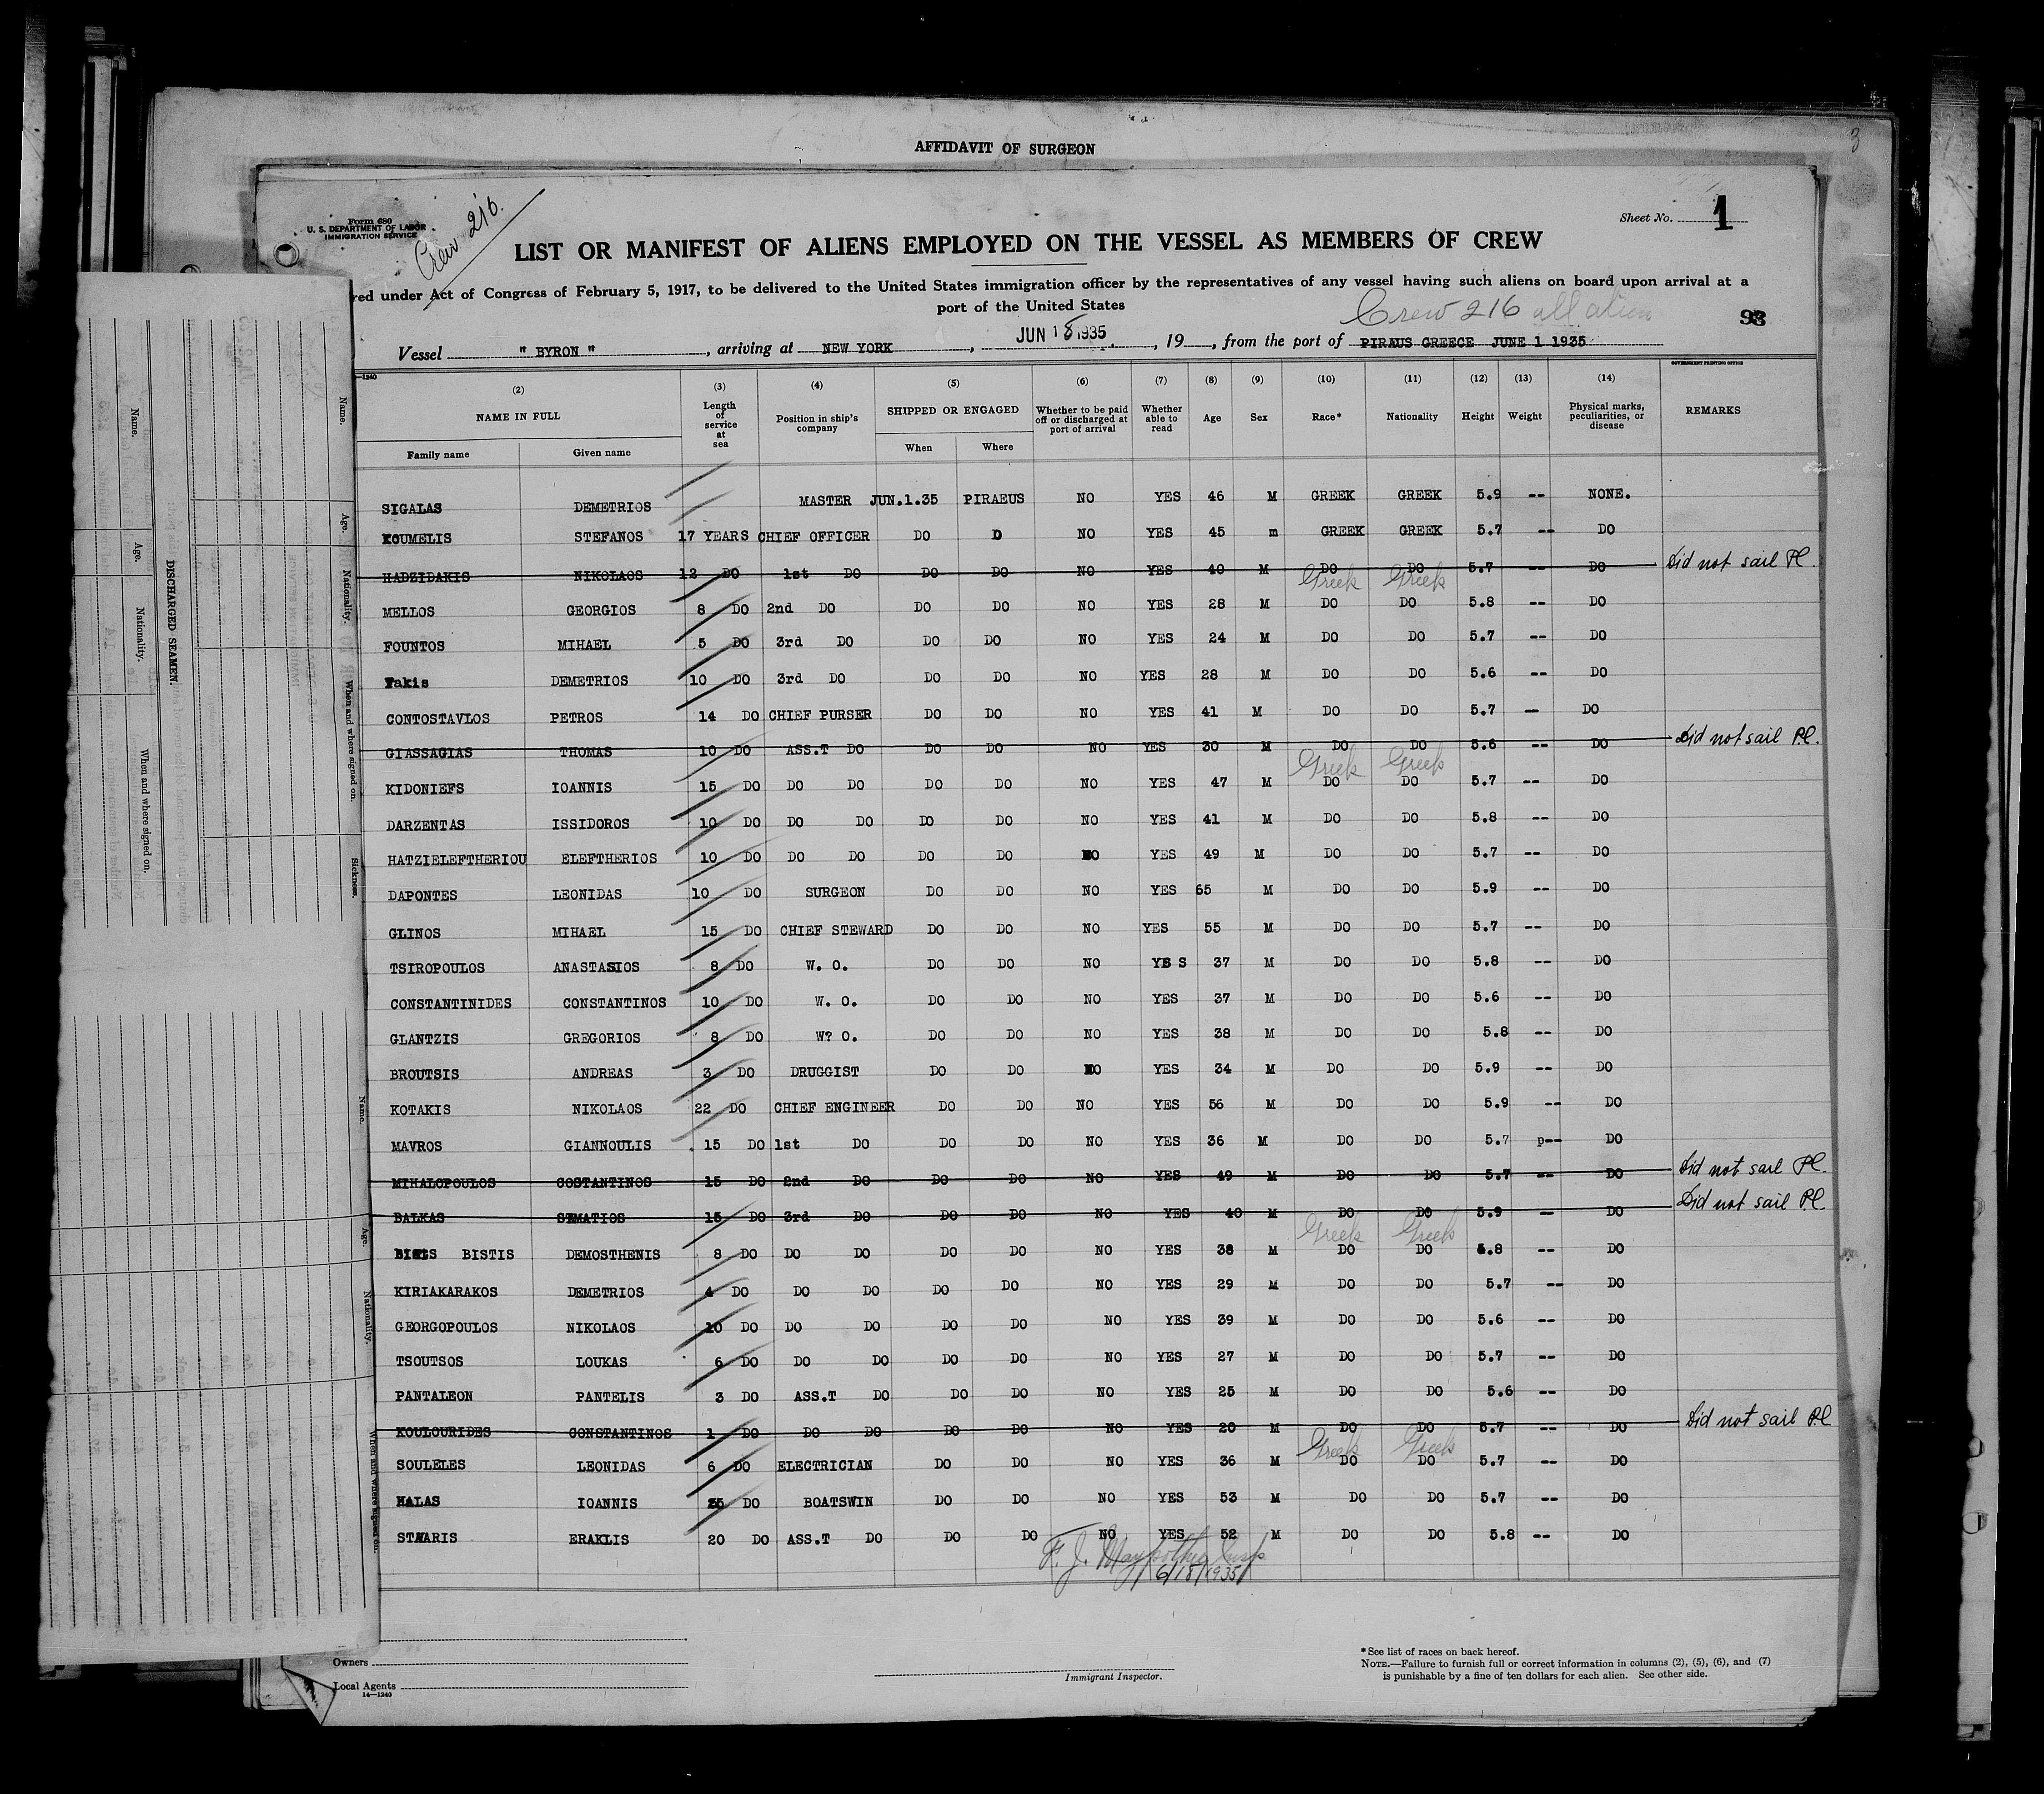 AFFIDAVIT OF SURGEON
3
Form 680
U. S. DEPARTMENT OF LABOR
IMMIGRATION SERVICE
Crew 216.
Sheet No. 1
LIST OR MANIFEST OF ALIENS EMPLOYED ON THE VESSEL AS MEMBERS OF CREW
red under Act of Congress of February 5, 1917, to be delivered to the United States immigration officer by the representatives of any vessel having such aliens on board upon arrival at a
port of the United States
Crew 216 all alien
93
Vessel " BYRON " , arriving at NEW YORK , JUN 18 1935 , 19 , from the port of PIRAUS GREECE JUNE 1 1935
—1240
GOVERNMENT PRINTING OFFICE
(2) (3) (4) (5) (6) (7) (8) (9) (10) (11) (12) (13) (14)
NAME IN FULL Length of service at sea Position in ship's company SHIPPED OR ENGAGED Whether to be paid off or discharged at port of arrival Whether able to read Age Sex Race* Nationality Height Weight Physical marks, peculiarities, or disease REMARKS
Family name Given name When Where
SIGALAS DEMETRIOS MASTER JUN.1.35 PIRAEUS NO YES 46 M GREEK GREEK 5.9 -- NONE.
KOUMELIS STEFANOS 17 YEARS CHIEF OFFICER DO D NO YES 45 m GREEK GREEK 5.7 -- DO
HADZIDAKIS NIKOLAOS 12 DO 1st DO DO DO NO YES 40 M DO DO 5.7 -- DO Did not sail Pl.
Greek Greek
MELLOS GEORGIOS 8 DO 2nd DO DO DO NO YES 28 M DO DO 5.8 -- DO
FOUNTOS MIHAEL 5 DO 3rd DO DO DO NO YES 24 M DO DO 5.7 -- DO
Fakis DEMETRIOS 10 DO 3rd DO DO DO NO YES 28 M DO DO 5.6 -- DO
CONTOSTAVLOS PETROS 14 DO CHIEF PURSER DO DO NO YES 41 M DO DO 5.7 — DO
GIASSAGIAS THOMAS 10 DO ASS.T DO DO DO NO YES 30 M DO DO 5.6 -- DO Did not sail Pl.
Greek Greek
KIDONIEFS IOANNIS 15 DO DO DO DO DO NO YES 47 M DO DO 5.7 -- DO
DARZENTAS ISSIDOROS 10 DO DO DO DO DO NO YES 41 M DO DO 5.8 -- DO
HATZIELEFTHERIOU ELEFTHERIOS 10 DO DO DO DO DO NO YES 49 M DO DO 5.7 -- DO
DAPONTES LEONIDAS 10 DO SURGEON DO DO NO YES 65 M DO DO 5.9 -- DO
GLINOS MIHAEL 15 DO CHIEF STEWARD DO DO NO YES 55 M DO DO 5.7 -- DO
TSIROPOULOS ANASTASIOS 8 DO W. O. DO DO NO YES 37 M DO DO 5.8 -- DO
CONSTANTINIDES CONSTANTINOS 10 DO W. O. DO DO NO YES 37 M DO DO 5.6 -- DO
GLANTZIS GREGORIOS 8 DO W? O. DO DO NO YES 38 M DO DO 5.8 -- DO
BROUTSIS ANDREAS 3 DO DRUGGIST DO DO NO YES 34 M DO DO 5.9 -- DO
KOTAKIS NIKOLAOS 22 DO CHIEF ENGINEER DO DO NO YES 56 M DO DO 5.9 -- DO
MAVROS GIANNOULIS 15 DO 1st DO DO DO NO YES 36 M DO DO 5.7 p-- DO
MIHALOPOULOS COSTANTINOS 15 DO 2nd DO DO DO NO YES 49 M DO DO 5.7 -- DO Did not sail Pl.
BALKAS STMATIOS 15 DO 3rd DO DO DO NO YES 40 M DO DO 5.9 — DO Did not sail Pl.
Greek Greek
BISTIS DEMOSTHENIS 8 DO DO DO DO DO NO YES 38 M DO DO 5.8 -- DO
KIRIAKARAKOS DEMETRIOS 4 DO DO DO DO DO NO YES 29 M DO DO 5.7 -- DO
GEORGOPOULOS NIKOLAOS 10 DO DO DO DO DO NO YES 39 M DO DO 5.6 -- DO
TSOUTSOS LOUKAS 6 DO DO DO DO DO NO YES 27 M DO DO 5.7 -- DO
PANTALEON PANTELIS 3 DO ASS.T DO DO DO NO YES 25 M DO DO 5.6 -- DO
KOULOURIDES CONSTANTINOS 1 DO DO DO DO DO NO YES 20 M DO DO 5.7 -- DO Did not sail Pl
Greek Greek
SOULELES LEONIDAS 6 DO ELECTRICIAN DO DO NO YES 36 M DO DO 5.7 -- DO
HALAS IOANNIS DO BOATSWIN DO DO NO YES 53 M DO DO 5.7 -- DO
STAVARIS ERAKLIS 20 DO ASS.T DO DO DO NO YES 52 M DO DO 5.8 -- DO
F. J.
6/18/1935/
Owners
Local Agents
14—1240
Immigrant Inspector.
*See list of races on back hereof.
NOTE.—Failure to furnish full or correct information in columns (2), (5), (6), and (7)
is punishable by a fine of ten dollars for each alien. See other side.
DISCHARGED SEAMEN.
Name.
Age.
Nationality.
When and where signed on.
Name.
Age.
Nationality.
When and where signed on.
Sickness.
Name.
Age.
Nationality.
When and where signed on.